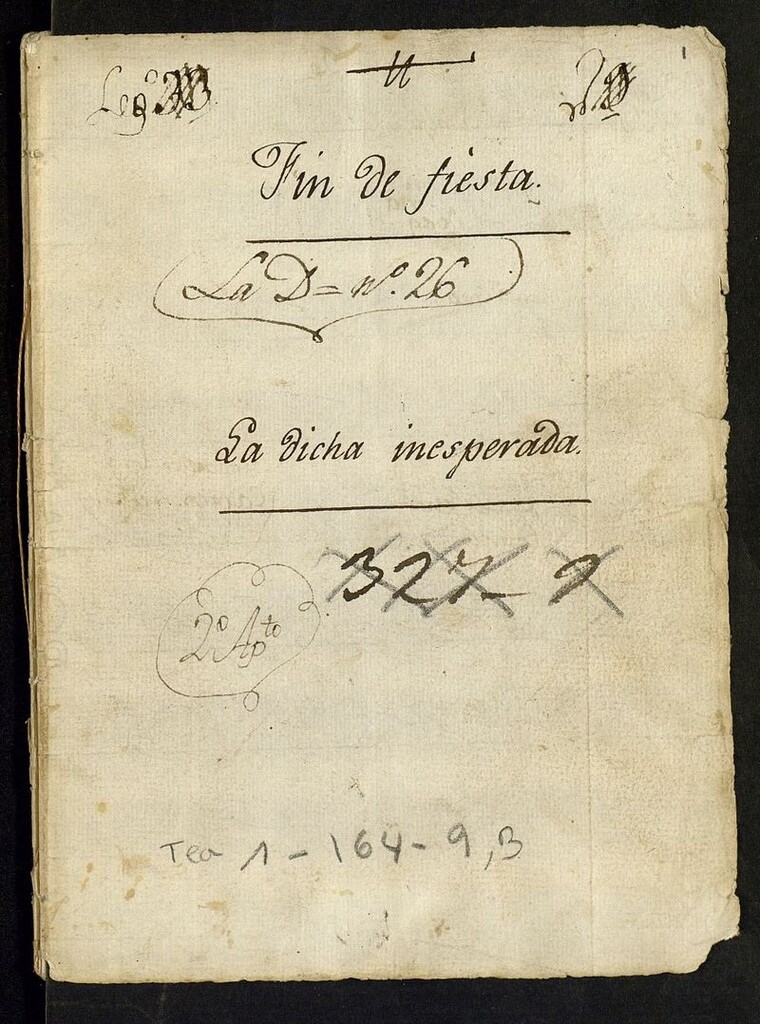 Leg.º
1
Fin de fiesta.
La D = nº. 26
La dicha inesperada.
327- 9
2º Apto
Tea 1 - 164 - 9, B